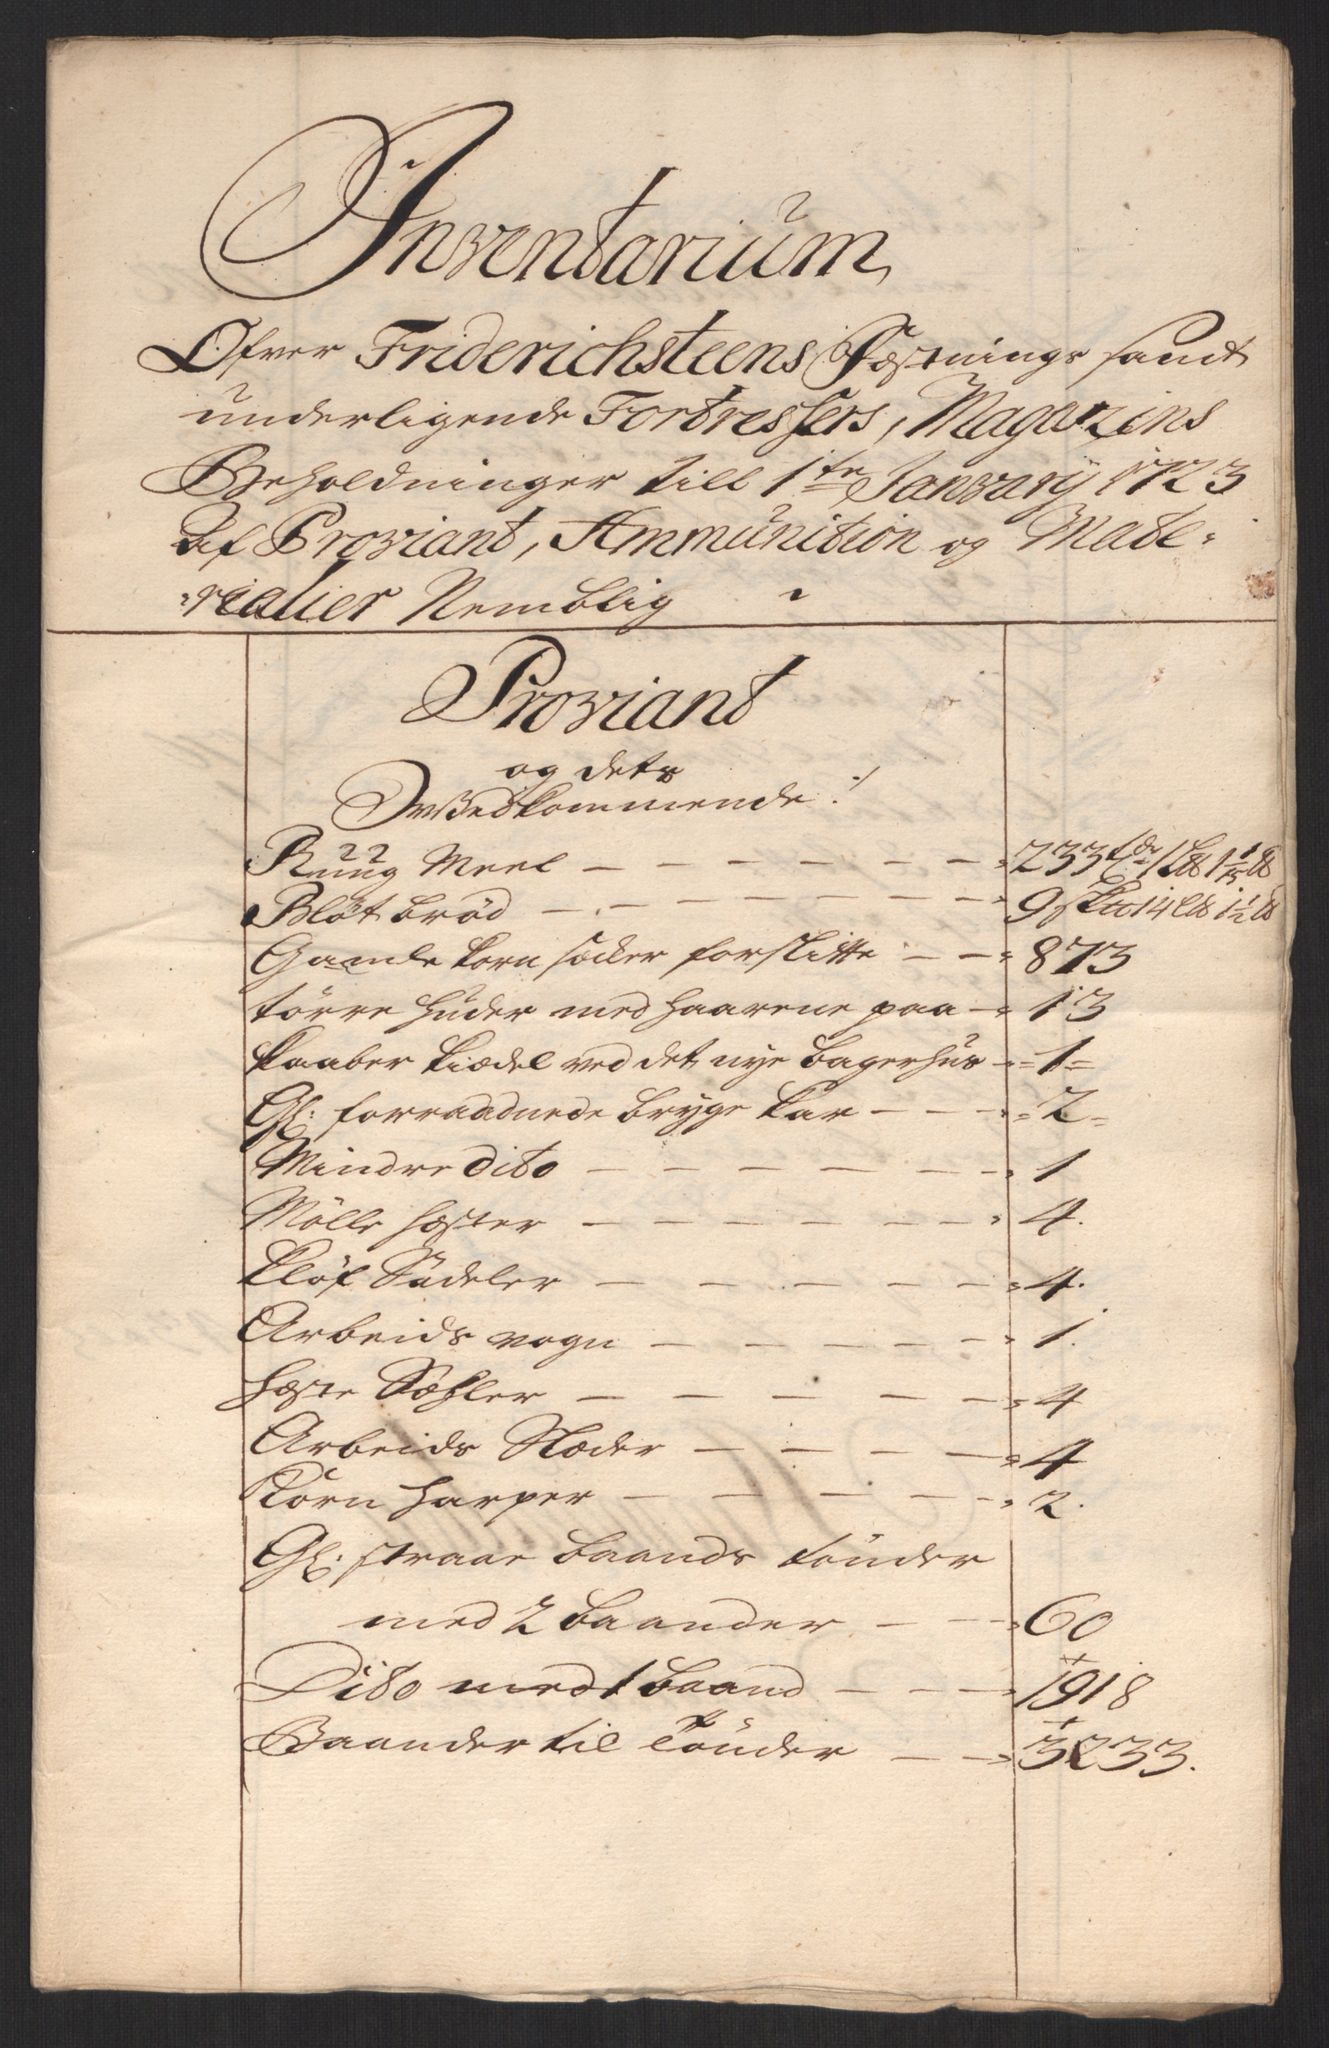 Inventarium
Ofver Friderichsteens Fæstnings samt
underligende Fortressers, Magazins
Beholdninger till 1te January 1723
Af Proviant, Ammunition og Mate-
rialier Nemblig
Proviant
og dets
Vedkommende:/
Rüüg Meel — 233 tde 1 Lb 1
Bløt brød — 9 14 Lb 1½ lb
Gamle korn sæcker forslitte — 873
törre huder med haarene paa — 13
kaaber kiædel ved det nye bagerhus — 1
Gl: forraadnede brygge kar — 2
Mindre dito — 1
Mölle hæster — 4.
klöf Sadeler — 4.
Arbeids vogn — 1.
hæste Sæhler — 4
Arbeids Slæder — 4
Korn harper — 2.
Gl: straae baands tönder
med 2 baander — 60
Dito med 1 baand — 1918
Baander til Tönder — 3233.